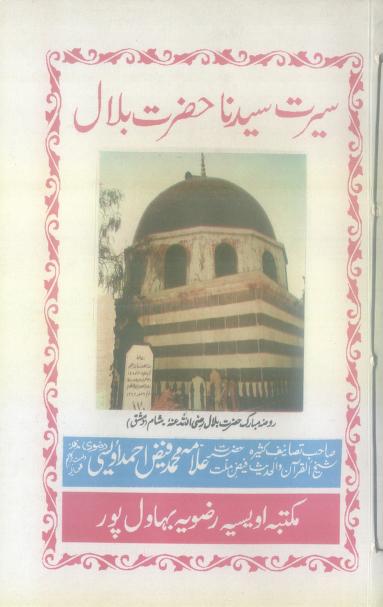 سیرت سیدنا حضرت بلال
روضہ مبارک حضرت بلال رضی اللہ عنہٗ شام (دمشق)
صاحب تصانیف کثیرہ حضرت علامہ محمد فیض احمد اویسی رضوی
شیخ القرآن والحدیث فیض ملت
مکتبہ اویسیہ رضویہ بہاول پور